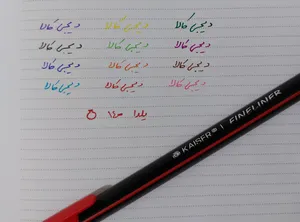 دیجی کالا دیجی کالا دیجی کالا
دیجی کالا دیجی کالا دیجی کالا
دیجی کالا دیجی کالا دیجی کالا
دیجی کالا دیجی کالا دیجی کالا
یلدا ۱۴۰۰
KAISER FINELINER